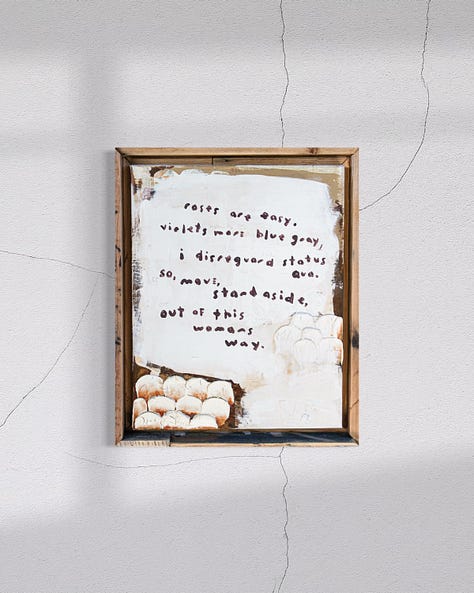 roses are easy.
violets more blue gray,
i disreguard status
quo.
so, move,
stand aside,
out of this
womans
way.